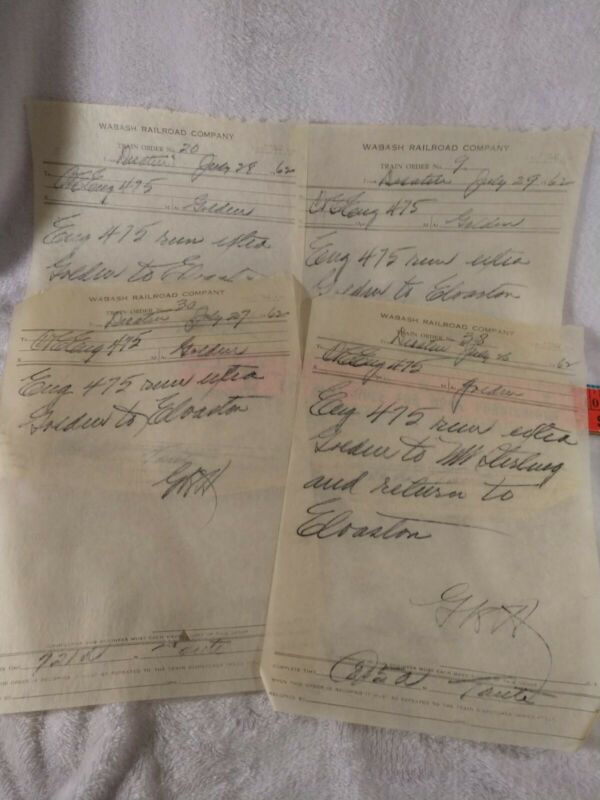 WABASH RAILROAD COMPANY
TRAIN ORDER No. 20
Decatur July 28 62
C&E Eng 475
Golden
Eng 475 run extra
Golden to Elvaston
WABASH RAILROAD COMPANY
TRAIN ORDER No. 9
Decatur July 29 62
C&E Eng 475
Golden
Eng 475 run extra
Golden to Elvaston
WABASH RAILROAD COMPANY
TRAIN ORDER No. 30
Decatur July 27 62
C&E Eng 475
Golden
Eng 475 run extra
Golden to Elvaston
GKH
WABASH RAILROAD COMPANY
TRAIN ORDER No. 38
Decatur July 26 62
C&E Eng 475
Golden
Eng 475 run extra
Golden to Mt Sterling
and return to
Elvaston
GKH
COMPLETE TIME